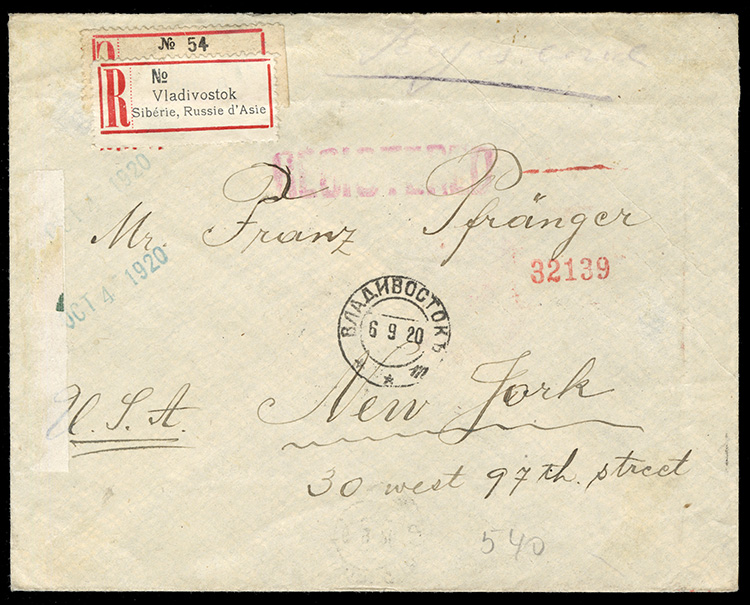 № 54
R
№
Vladivostok
Sibérie, Russie d'Asie
REGISTERED
1920
Mr Franz Pfränger
OCT 4 1920
32139
ВЛАДИВОСТОКЪ
6 9 20
New York
U.S.A.
30 west 97th. street
540